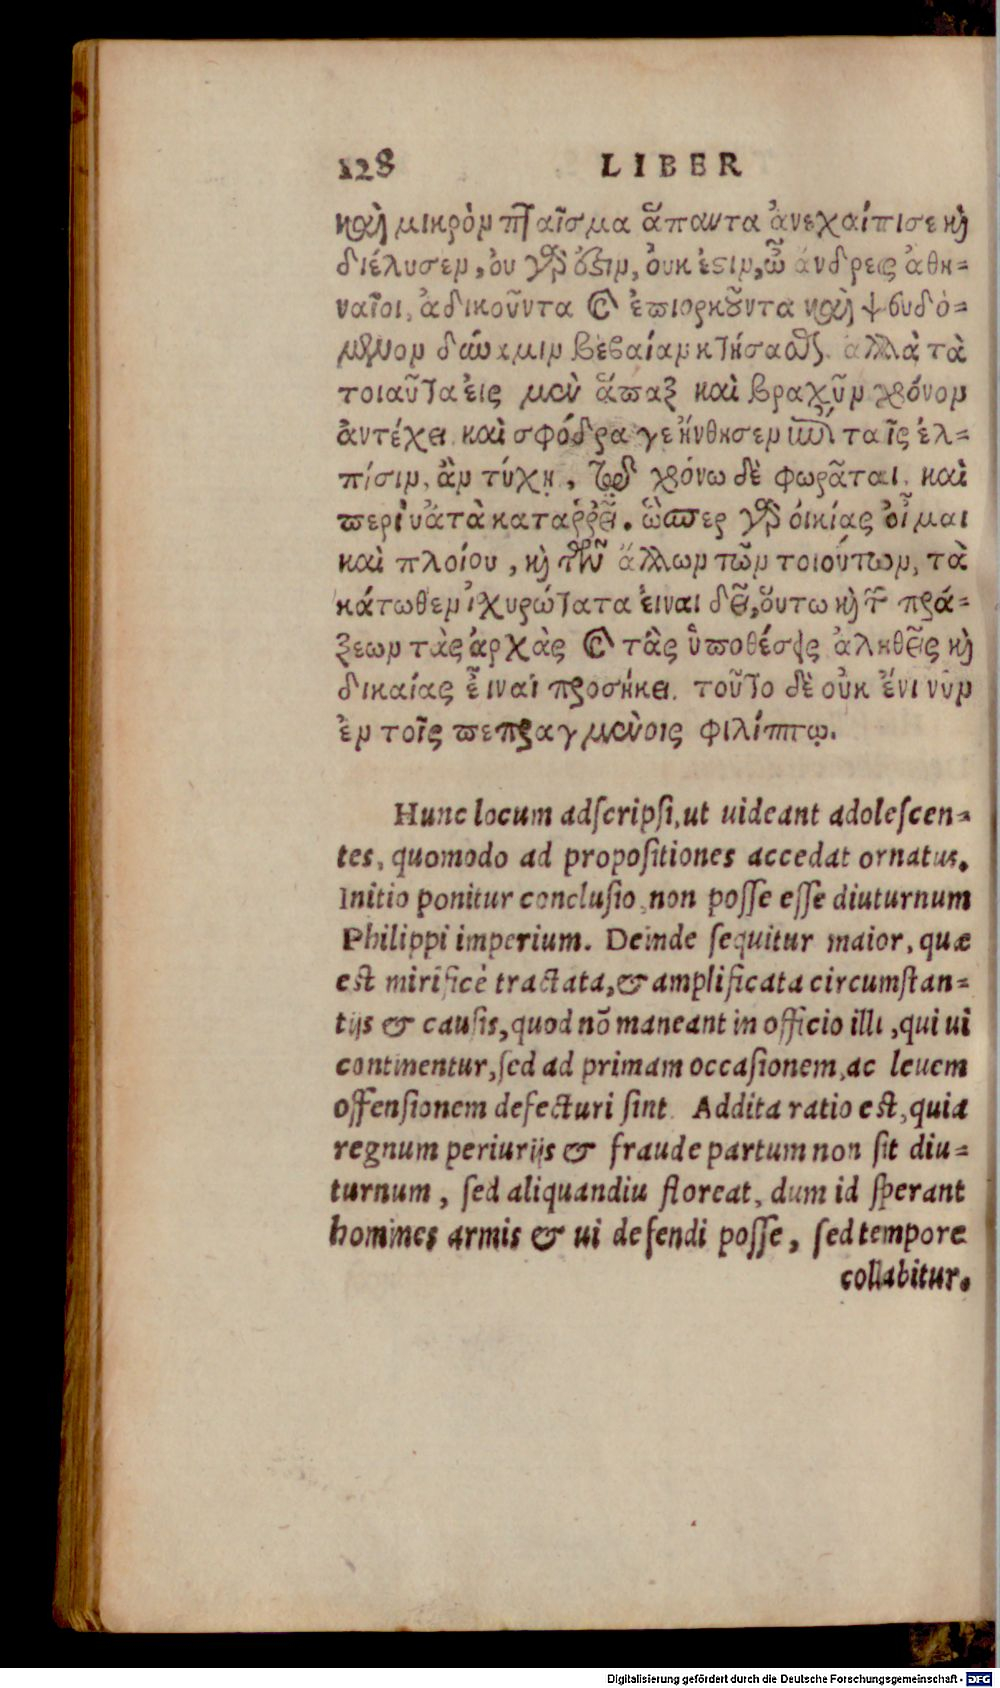 128 LIBER
καὶ μικρὸν πταῖσμα ἅπαντα ἀνεχαίτισε κὶ
διέλυσεν, ὀυ γὰρ ὄξιν, ὀυκ ἔστιν, ὦ ἄνδρες ἀθη-
ναῖοι, ἀδικοῦντα καὶ ἐπιορκοῦντα καὶ ψευδό-
μενον δύναμιν βεβαίαν κτήσασθαι. ἀλλὰ τὰ
τοιαῦτα ἐις μὲν ἅπαξ καὶ βραχῦν χρόνον
ἀντέχει. καὶ σφόδρα γε ἤνθησεν ἐπὶ ταῖς ἐλ-
πίσιν, ἂν τύχῃ, τῷ χρόνω δὲ φωρᾶται. καὶ
περὶ υἅτὰ καταῤῥεῖ. ὥσπερ γὰρ ὀικίας ὀῖμαι
καὶ πλοίου, κὶ τῶν ἄλλων τῶν τοιούτων, τὰ
κάτωθεν ἰχυρώτατα ἐιναι δεῖ, ὅυτω κὶ τῶν πρά-
ξεων τὰς ἀρχὰς καὶ τὰς ὑποθέσεις ἀληθεῖς κὶ
δικαίας ἐῖναι προσήκει. τοῦτο δὲ οὐκ ἔνι νῦν
ἐν τοῖς πεπραγμένοις φιλίππῳ.
Hunc locum adſcripſi, ut uideant adoleſcen-
tes, quomodo ad propoſitiones accedat ornatus.
Initio ponitur concluſio, non poſſe eſſe diuturnum
Philippi imperium. Deinde ſequitur maior, quæ
est mirificè tractata, & amplificata circumſtan-
tijs & cauſis, quod nõ maneant in officio illi, qui ui
continentur, ſed ad primam occaſionem, ac leuem
offenſionem defecturi ſint. Addita ratio est, quia
regnum periurijs & fraude partum non ſit diu-
turnum, ſed aliquandiu floreat, dum id ſperant
homines armis & ui defendi poſſe, ſed tempore
collabitur.
Digitalisierung gefördert durch die Deutsche Forschungsgemeinschaft - DFG